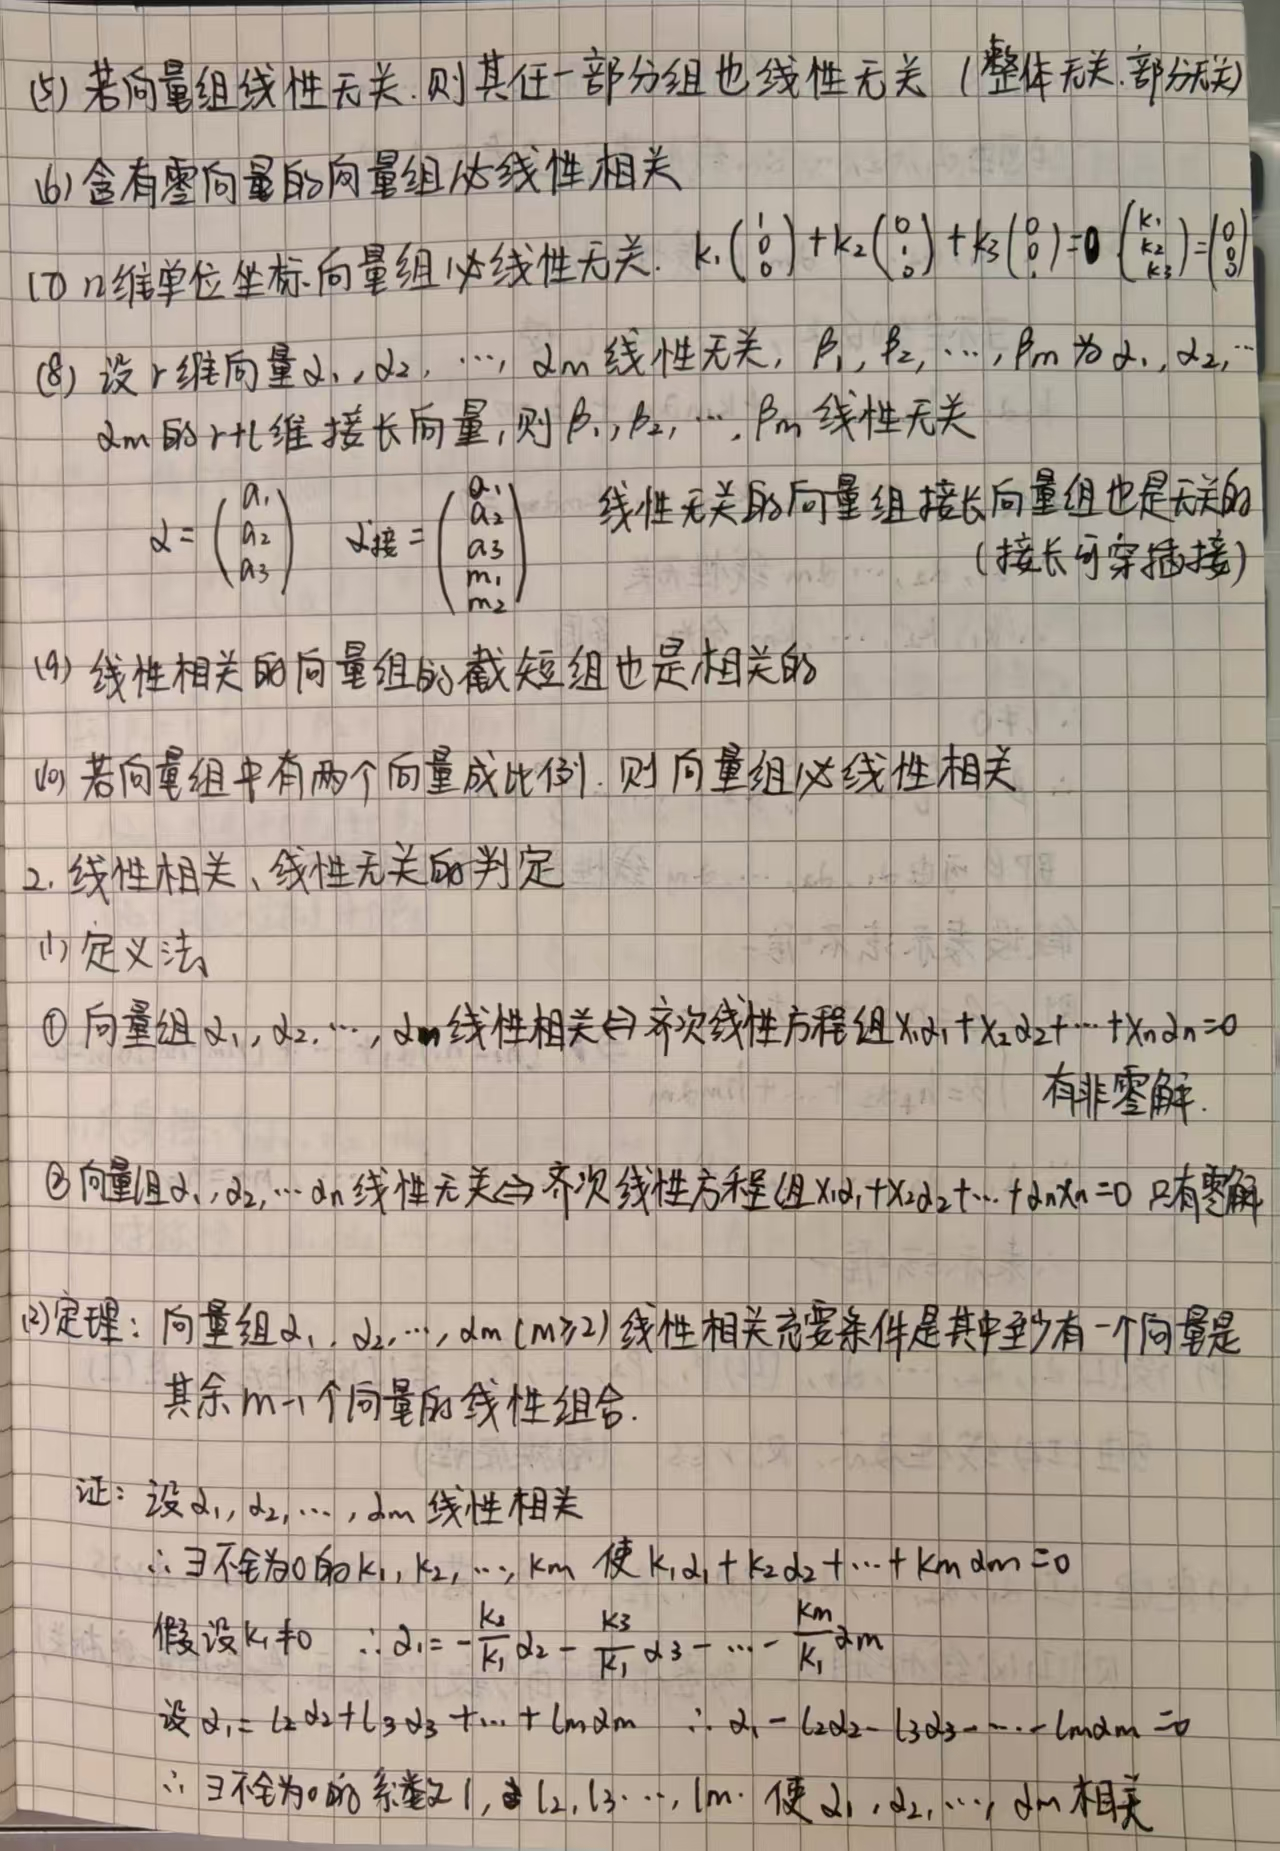 (5) 若向量组线性无关.则其任一部分组也线性无关 (整体无关.部分无关)
(6) 含有零向量的向量组必线性相关
(7) n维单位坐标向量组必线性无关. k₁(1 0 0)+k₂(0 1 0)+k₃(0 0 1)=0 (k₁ k₂ k₃)=(0 0 0)
(8) 设r维向量α₁,α₂, …, αm 线性无关, β₁,β₂,…,βm 为 α₁,α₂,…
αm的r+1维接长向量,则β₁,β₂,…,βm 线性无关
α=(a₁ a₂ a₃) α接=(a₁ a₂ a₃ m₁ m₂) 线性无关的向量组接长向量组也是无关的
(接长可穿插接)
(9) 线性相关的向量组的截短组也是相关的
(10) 若向量组中有两个向量成比例.则向量组必线性相关
2. 线性相关、线性无关的判定
(1) 定义法
① 向量组α₁,α₂.…,αn线性相关⇔齐次线性方程组x₁α₁+x₂α₂+…+xnαn=0
有非零解.
② 向量组α₁,α₂,…αn线性无关⇔齐次线性方程组x₁α₁+x₂α₂+…+αnxn=0 只有零解
(2)定理: 向量组α₁,α₂,…,αm(m≥2)线性相关充要条件是其中至少有一个向量是
其余m-1个向量的线性组合.
证: 设α₁,α₂,…,αm线性相关
∴∃不全为0的k₁,k₂,…,km 使k₁α₁+k₂α₂+…+kmαm=0
假设k₁≠0 ∴α₁=-k₂/k₁α₂-k₃/k₁α₃-…-km/k₁αm
设α₁=l₂α₂+l₃α₃+…+lmαm ∴α₁-l₂α₂-l₃α₃-…-lmαm=0
∴∃不全为0的系数1,l₂,l₃…,lm.使α₁,α₂,…,αm相关